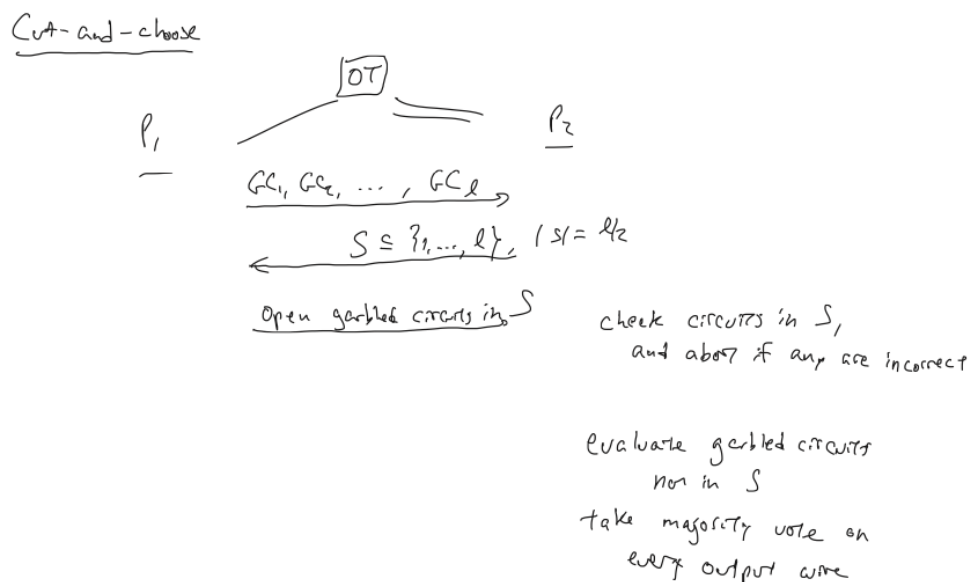 Cut-and-choose
OT
P₁
P₂
GC₁, GC₂, ..., GC_ℓ
S ⊆ {1,..., ℓ}, |S| = ℓ/2
open garbled circuits in S
check circuits in S,
and abort if any are incorrect
evaluate garbled circuits
not in S
take majority vote on
every output wire